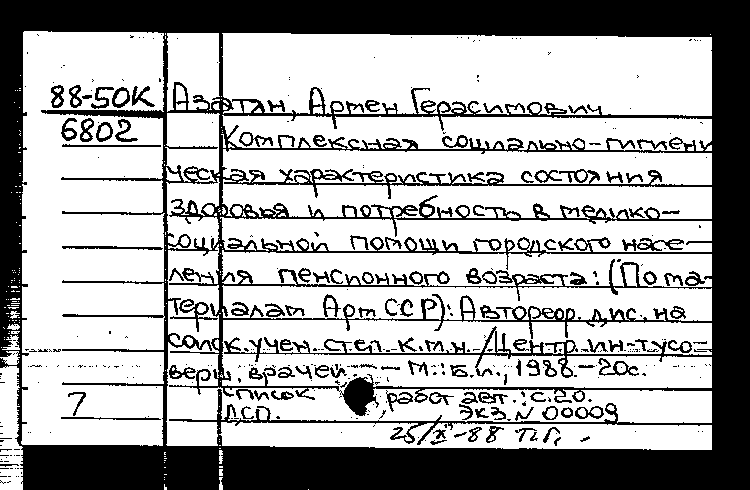 88-50К Азатян, Армен Герасимович
6802 Комплексная социально-гигиени
ческая характеристика состояния
здоровья и потребность в медико-
социальной помощи городского насе-
ления пенсионного возраста: (По ма-
териалам Арм ССР): Автореф. дис. на
соиск. учен. степ. к.м.н. /Центр. ин-т усо-
верш. врачей. - М.: Б.и., 1988.-20с.
список работ авт.: с.20.
7 ДСП. Экз. N 00009
25/X-88